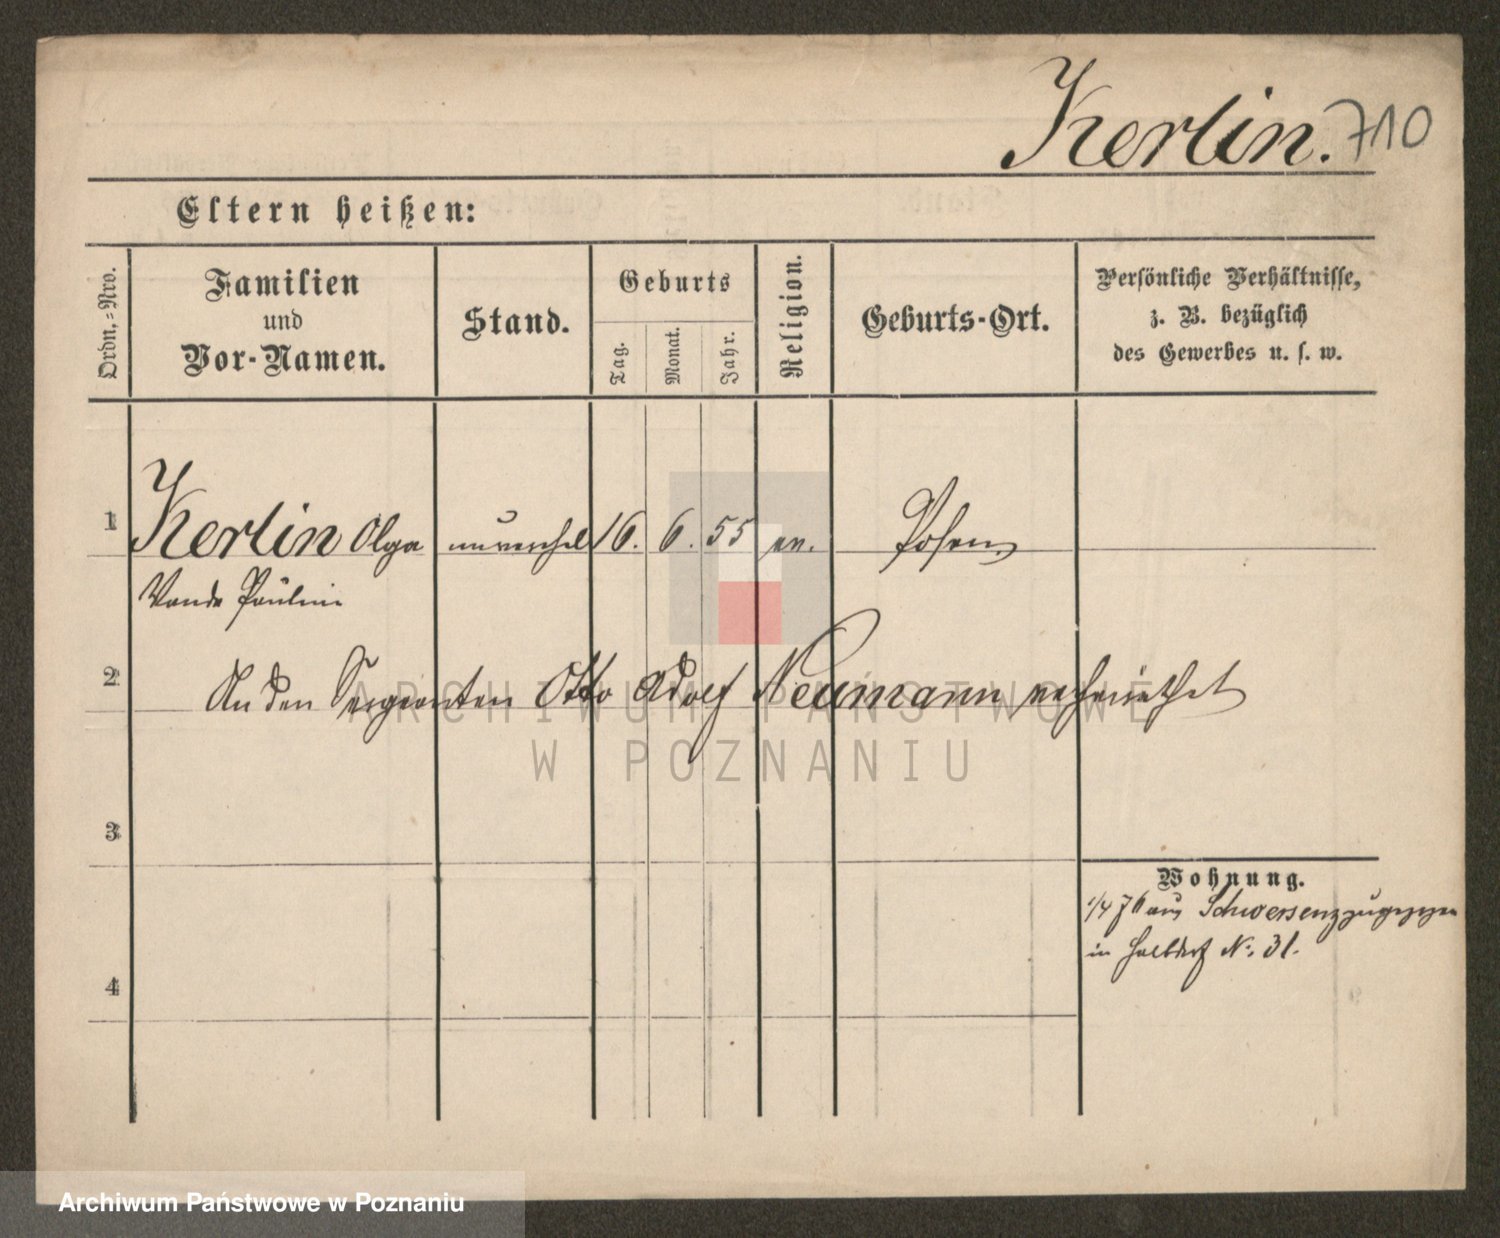 Kerlin. 710
Eltern heißen:
Ordn.-Nro.
Familien
und
Vor-Namen.
Stand.
Geburts
Tag.
Monat.
Jahr.
Religion.
Geburts-Ort.
Persönliche Verhältnisse,
z. B. bezüglich
des Gewerbes u. s. w.
1 Kerlin Olga unverehel 16. 6. 55 ev. Posen
Wanda Paulin
2 An den Sergeanten Otto Adolf Neumann verheirathet
3
4
Wohnung.
1/4 76 aus Schwersenz zugezogen
in Halbdorf No. 31.
ARCHIWUM PAŃSTWOWE
W POZNANIU
Archiwum Państwowe w Poznaniu